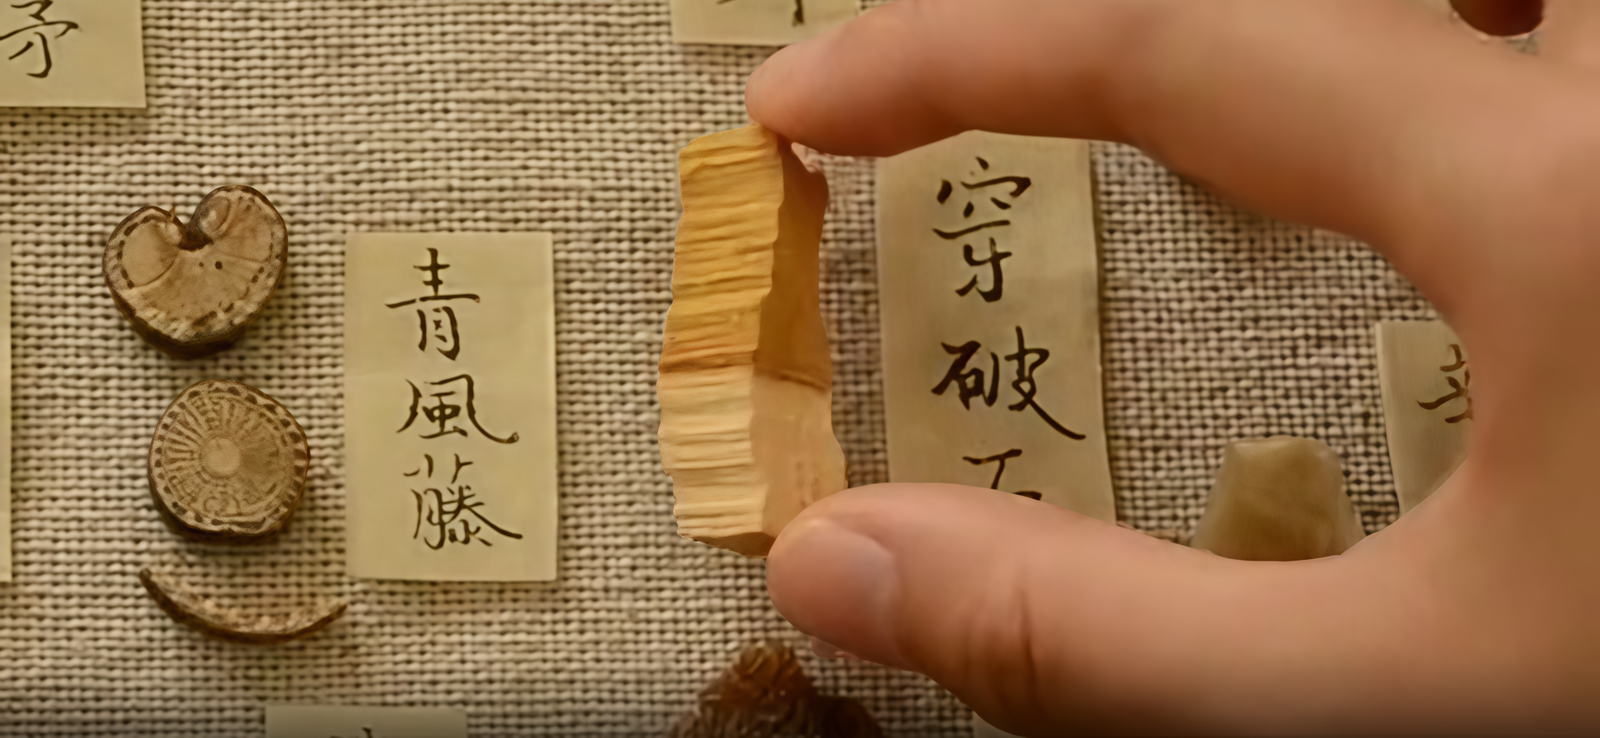 青風藤
穿破石